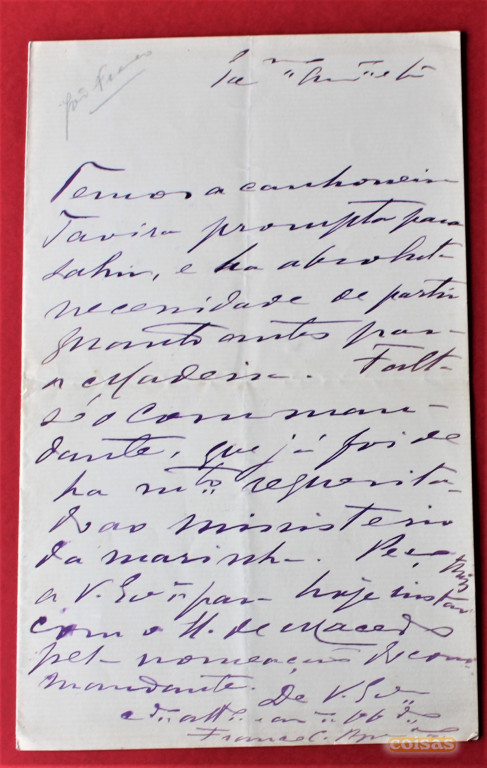 João Franco
Temos a canhoneira
Tavira prompta para
sahir, e ha absoluta
necessidade de partir
quanto antes para
a Madeira. Falta
só o comman-
dante, que já foi de
ha mto requerita-
do ao ministerio
da marinha. Peço pois
a V. Exa para hoje instar
com o H. de Macedo
pela nomeação do com-
mandante.
De V. Exa
Franco C.
coisas